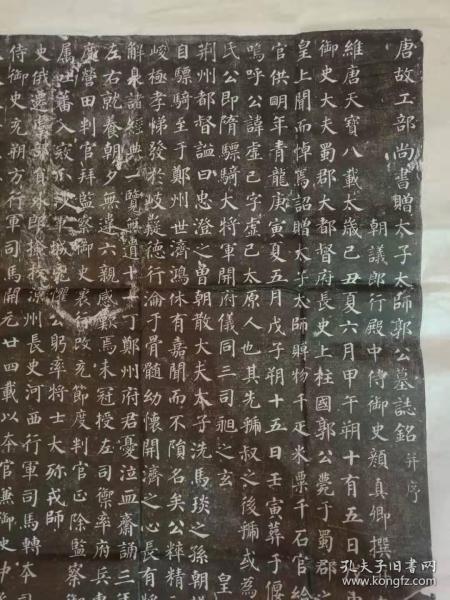 唐故工部尚書贈太子太師郭公墓誌銘并序
朝議郎行殿中侍御史顏真卿撰
維唐天寶八載太歲己丑夏六月甲午朔十有五日
御史大夫蜀郡大都督府長史上柱國郭公薨于蜀郡之
皇上聞而悼焉詔贈太子太師賻物千疋米粟千石官給
官供明年青龍庚寅夏五月戊子朔十五日壬寅葬于偃
嗚呼公諱虛己字虛己太原人也其先虢叔之後虢或為
氏公即隋驃騎大將軍開府儀同三司昶之玄
荊州都督謚曰忠澄之曾朝散大夫太子洗馬琰之孫朝
自驃騎至于鄭州世濟鴻休有嘉聞而不隕名矣公粹精
峻極孝悌發於岐嶷德行淪于骨髓幼懷開濟之心長有
解泉諸經典一覽無遺十一丁鄭州府君憂泣血齋誦三年
左右就養朝夕無違六親感歎焉未冠授左司禦率府兵
度營田判官拜監察御史裏行改充節度判官正除監察
屬吐蕃入寇瓜沙軍城公躬率將士大殄戎師
史俄遷 部員外郎檢校涼州長史河西行軍司馬轉本司
侍御史充朔方行軍司馬開元廿四載以本官兼御史中
孔夫子旧书网